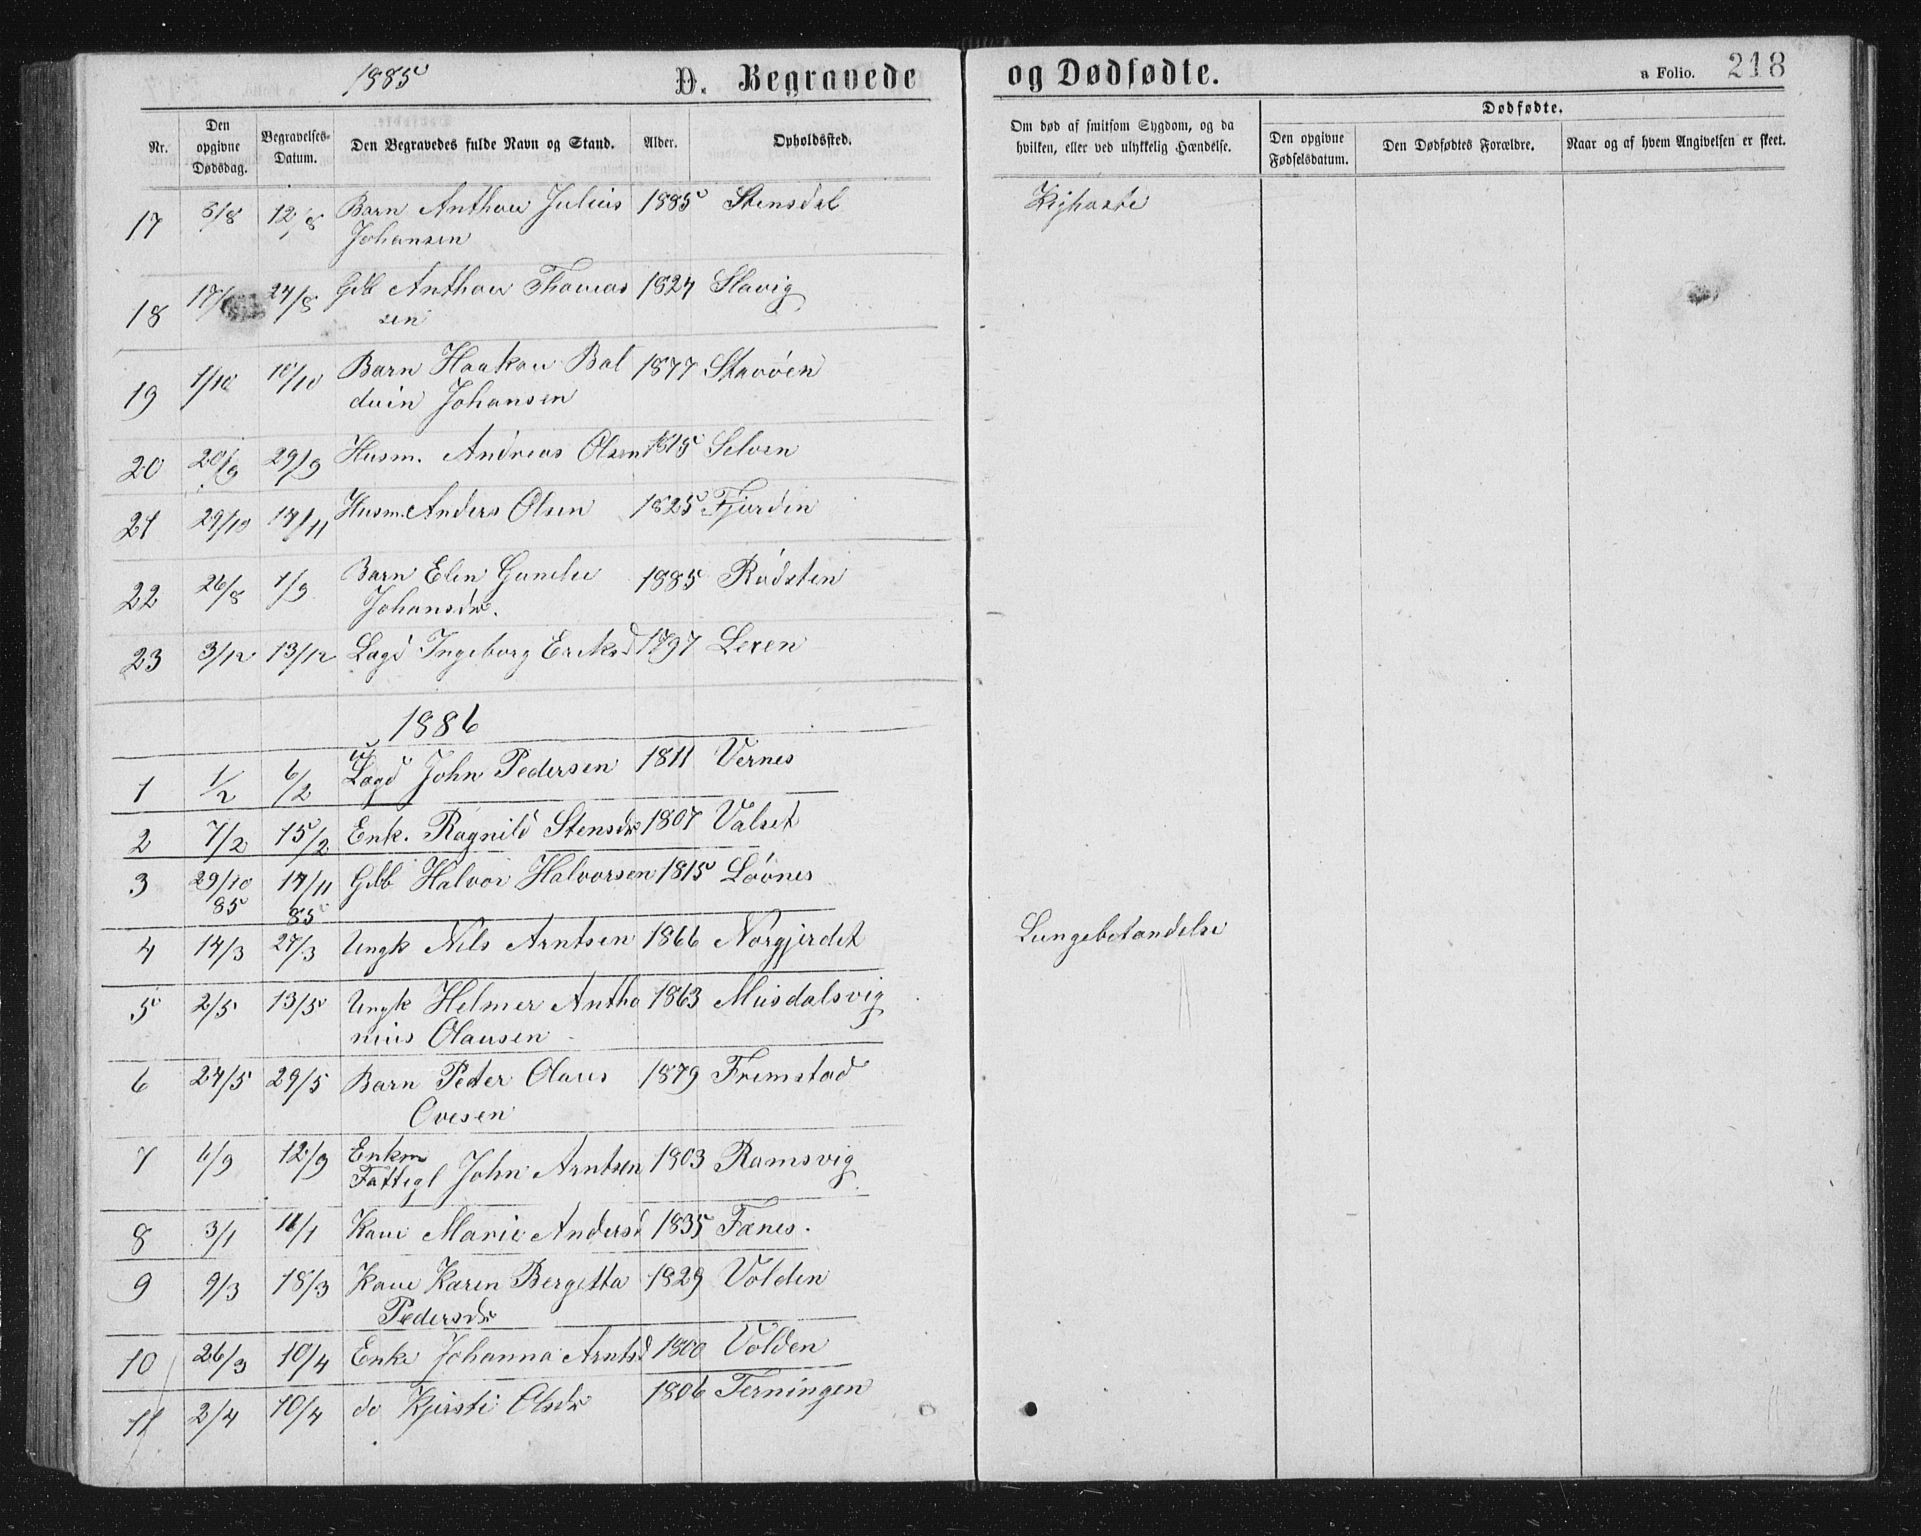 1885
D. Begravede og Dødfødte.
a Folio. 218
Nr. Den opgivne Dødsdag. Begravelses-Datum. Den Begravedes fulde Navn og Stand. Alder. Opholdssted. Om død af smitsom Sygdom, og da hvilken, eller ved ulykkelig Hændelse. Dødfødte. Den opgivne Fødselsdatum. Den Dødfødtes Forældre. Naar og af hvem Angivelsen er skeet.
17 12/8 Barn Anthon Julius 1885 Stensdal Kighoste
Johansen
18 17/ 24/8 Gdb Anthon Thomas 1824 Slavig
sen
19 1/10 10/10 Barn Haakon Bal 1877 Stavøen
duin Johansen
20 20/9 29/9 Husm. Andreas Olsen 1815 Selven
21 29/10 14/11 Husm. Anders Olsen 1825 Fjorden
22 26/8 1/9 Barn Elen 1885 Rødsten
Johansdr.
23 3/12 13/12 Lægd Ingeborg Eriksd 1797 Lexen
1886
1 1/2 6/2 Lægd John Pedersen 1811 Vernes
2 7/2 15/2 Enk. Ragnild Stensdr 1807 Valset
3 29/10 14/11 Gdb Halvor Halvorsen 1815 Løvnes
85 85
4 14/3 27/3 Ungk Nils Arntsen 1866 Norgjerdet Lungebetændelse
5 2/5 13/5 Ungk Helmer Antho 1863 Musdalsvig
nius Olausen
6 24/5 29/5 Barn Peter Olaus 1879 Fremstad
Ovesen
7 6/9 12/9 Enkm
Fattigl John Arntsen 1803 Ramsvig
8 3/1 11/1 Kone Marie Andersd 1835 Fanes.
9 9/3 18/3 Kone Karen Bergitta 1829 Volden
Pedersdr
10 26/3 10/4 Enke Johanna Arntsd 1800 Volden
11 2/4 10/4 do Kjersti Olsdr 1806 Terningen